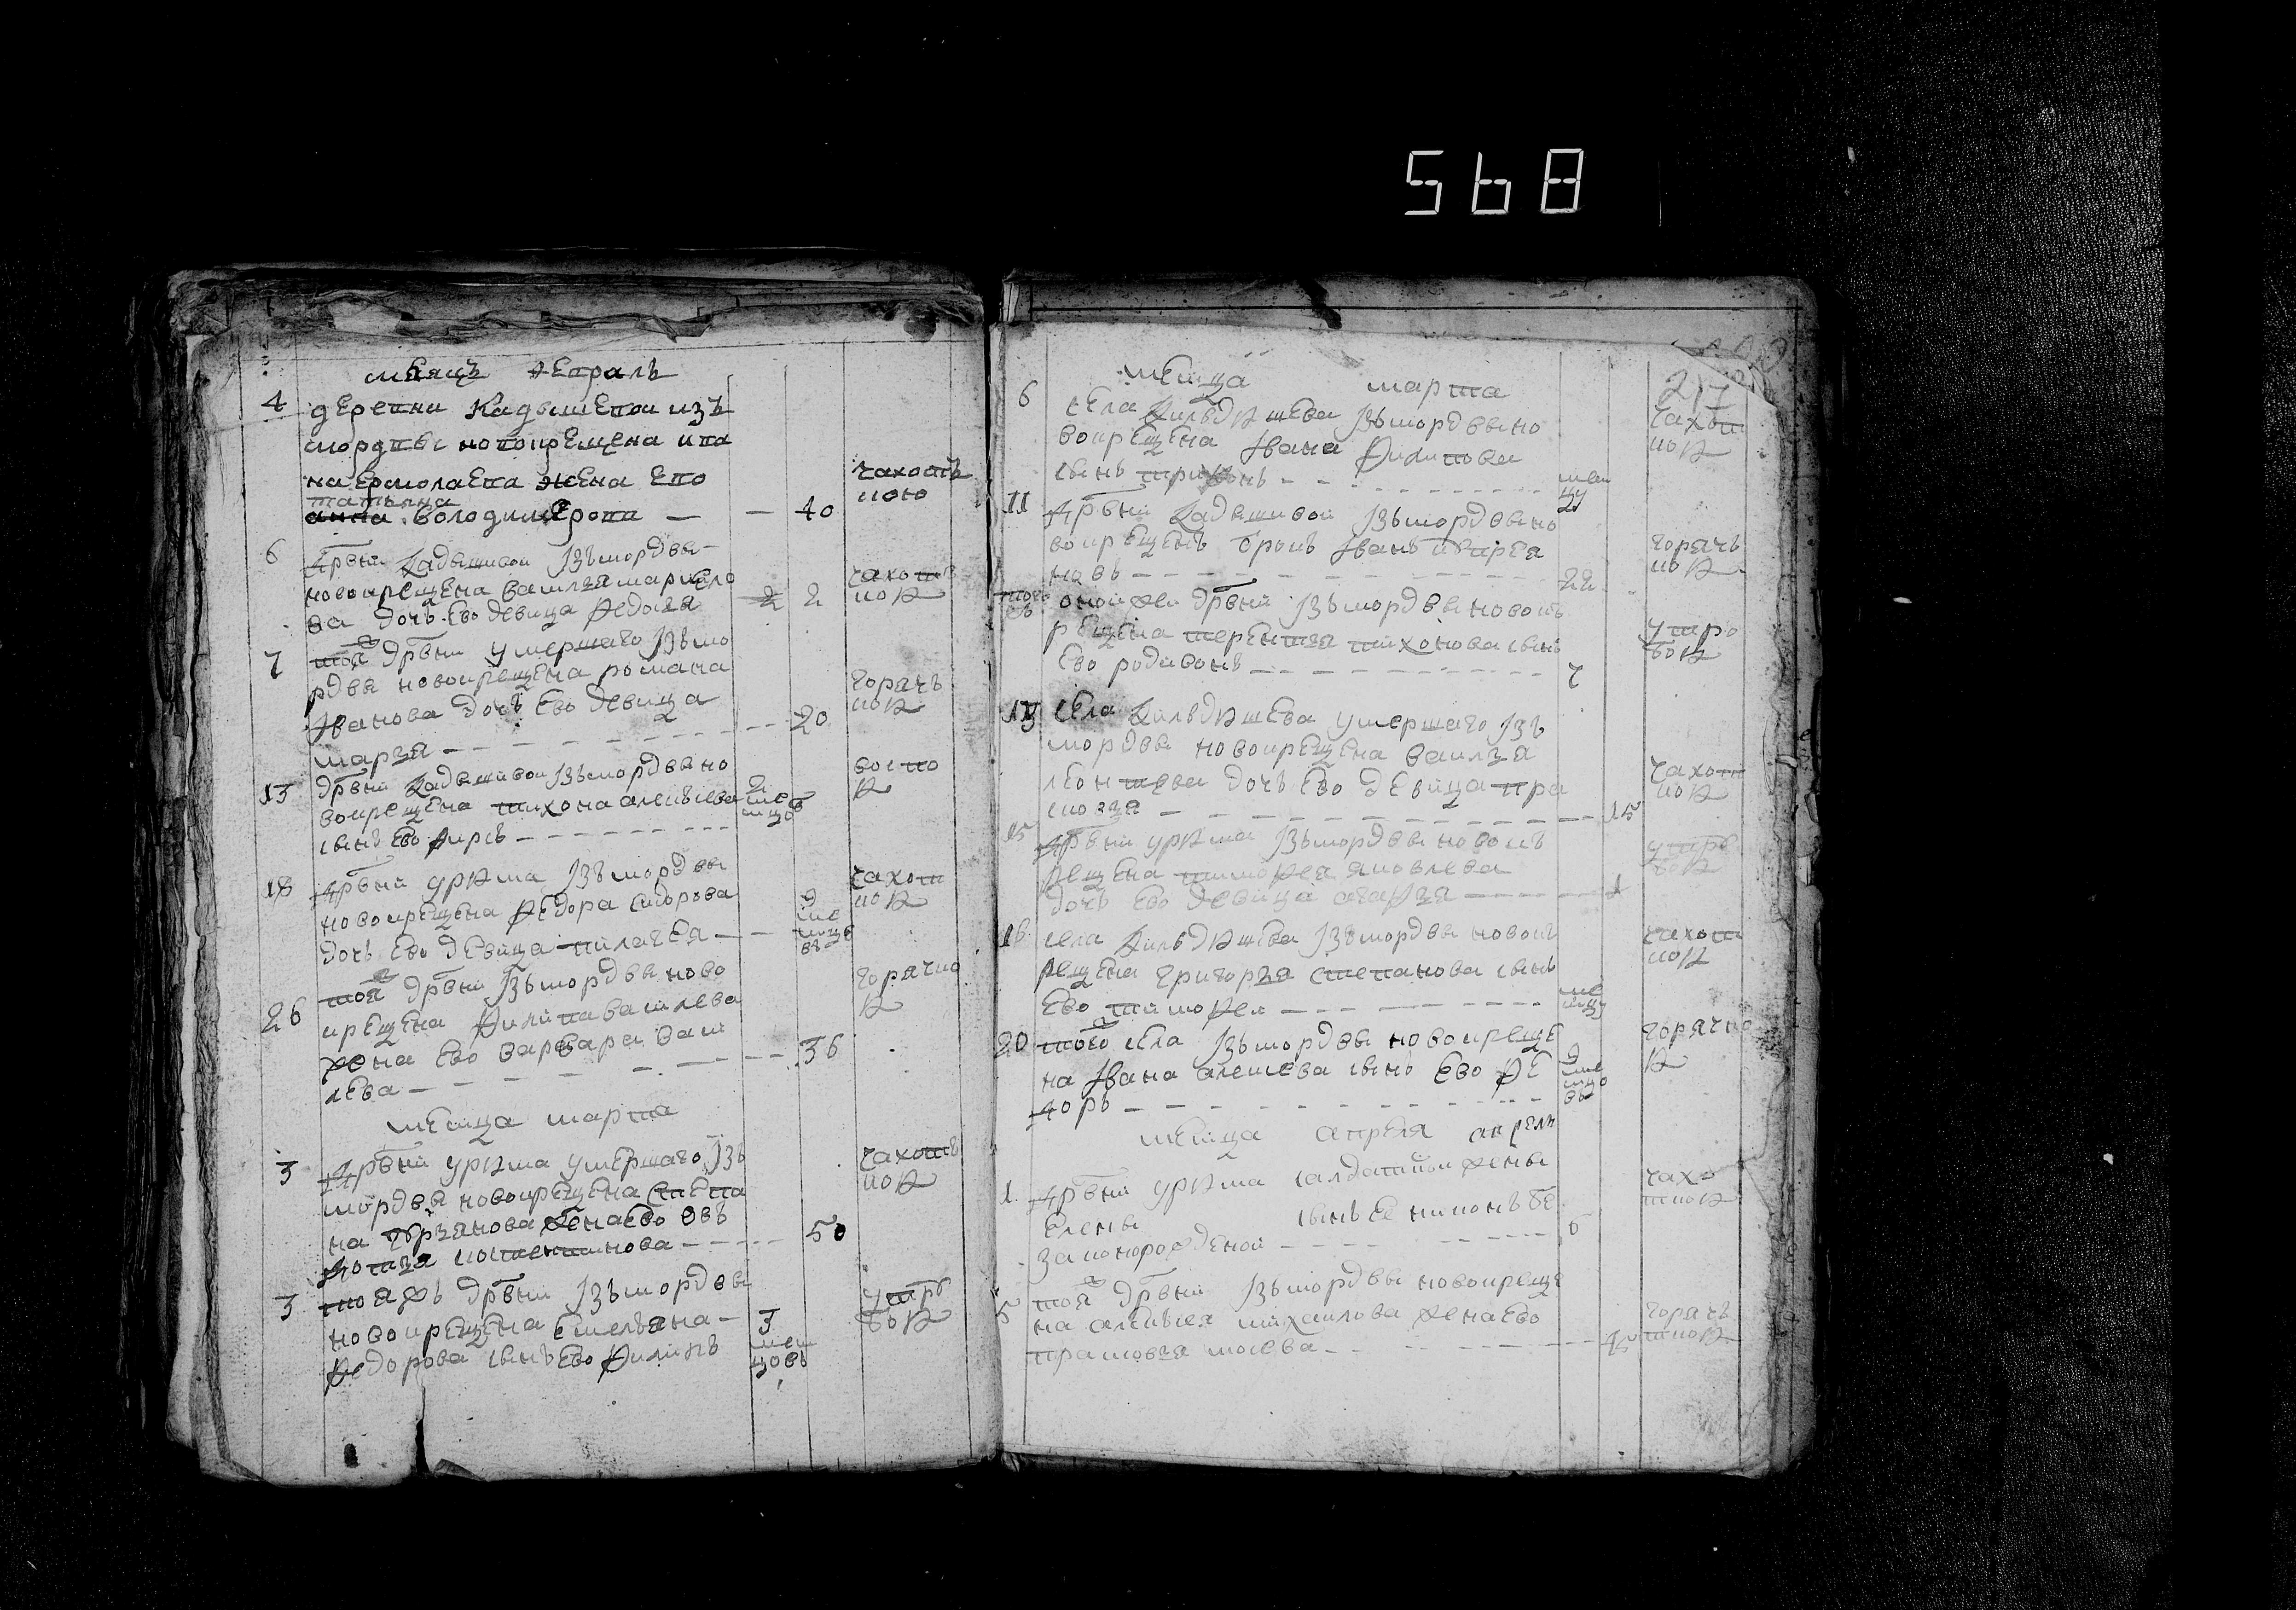 568
месяцъ февраль
4 деревни Кадышевои изъ
мордвы новокрещена ива
на Ермолаева жена ево
татьяна
анна володимерова — — 40
чахот
кою
6 дрвни кадышевои Iзъ мордвы
новокрещена василья
ва дочь ево девица федосья 2 2
чахот
кою
7 тоя дрвни умершаго Iзъ мо
рдвы новокрещена романа
Iванова дочь ево девица
марья 20
горяч
кою
13 дрвни кадышевои Iзъ мордвы но
вокрещена тихона алексѣева
сынъ ево фирсъ 2
меся
цо
воспо
ю
18 дрвни урюма Iзъ мордвы
новокрещена федора сидорова
дочь ево девица пилагея 9
ме
сяцо
въ
чахот
кою
26 тоя дрвни Iзъ мордвы ново
крещена филипа васильева
жена ево варвара васи
лева 36
горячко
ю
месяца марта
3 дрвни урюма умершаго Iзъ
мордвы новокрещена степа
на жена ево евъ
докья костентинова 50
чахот
кою
3 тоя жъ дрвни Iзъ мордвы
новокрещена Емельяна
федорова сынъ ево филипъ 3
меся
цовъ
утро
бою
217
месяца марта
6 села кильдюшева Iзъ мордвы но
вокрещена Iвана филипова
сынъ трифонъ
меся
цу
чахот
кою
11 дрвни кадышевои Iзъ мордвы но
вокрещенъ Iванъ
новъ 22
горячь
кою
тогож
онои жеи дрвни Iзъ мордвы новок
рещена терентья тихонова сынъ
ево родивонъ 7
утро
бою
13 села кильдюшева умершаго Iзъ
мордвы новокрещена василья
леонтева дочь ево девица пра
сковья 15
чахот
кою
15 дрвни урюма Iзъ мордвы новок
рещена тимофея яковлева
дочь ево девица агафья 1
утро
бою
16 села кильдюшева Iзъ мордвы новок
рещена григорья степанова сынъ
ево тимофеи
ме
сяцу
чахот
кою
20 того села Iзъ мордвы новокреще
на Iвана алексева сынъ ево фе
доръ 9
ме
сяцо
въ
горячко
ю
месяца апреля апрель
1 дрвни урюма салдатской жены
елены сынъ ее никонъ бе
законорожденой 6
чахо
ткою
5 тоя дрвни Iзъ мордвы новокреще
на алексѣя михаилова жена ево
прасковья
горячь
кою